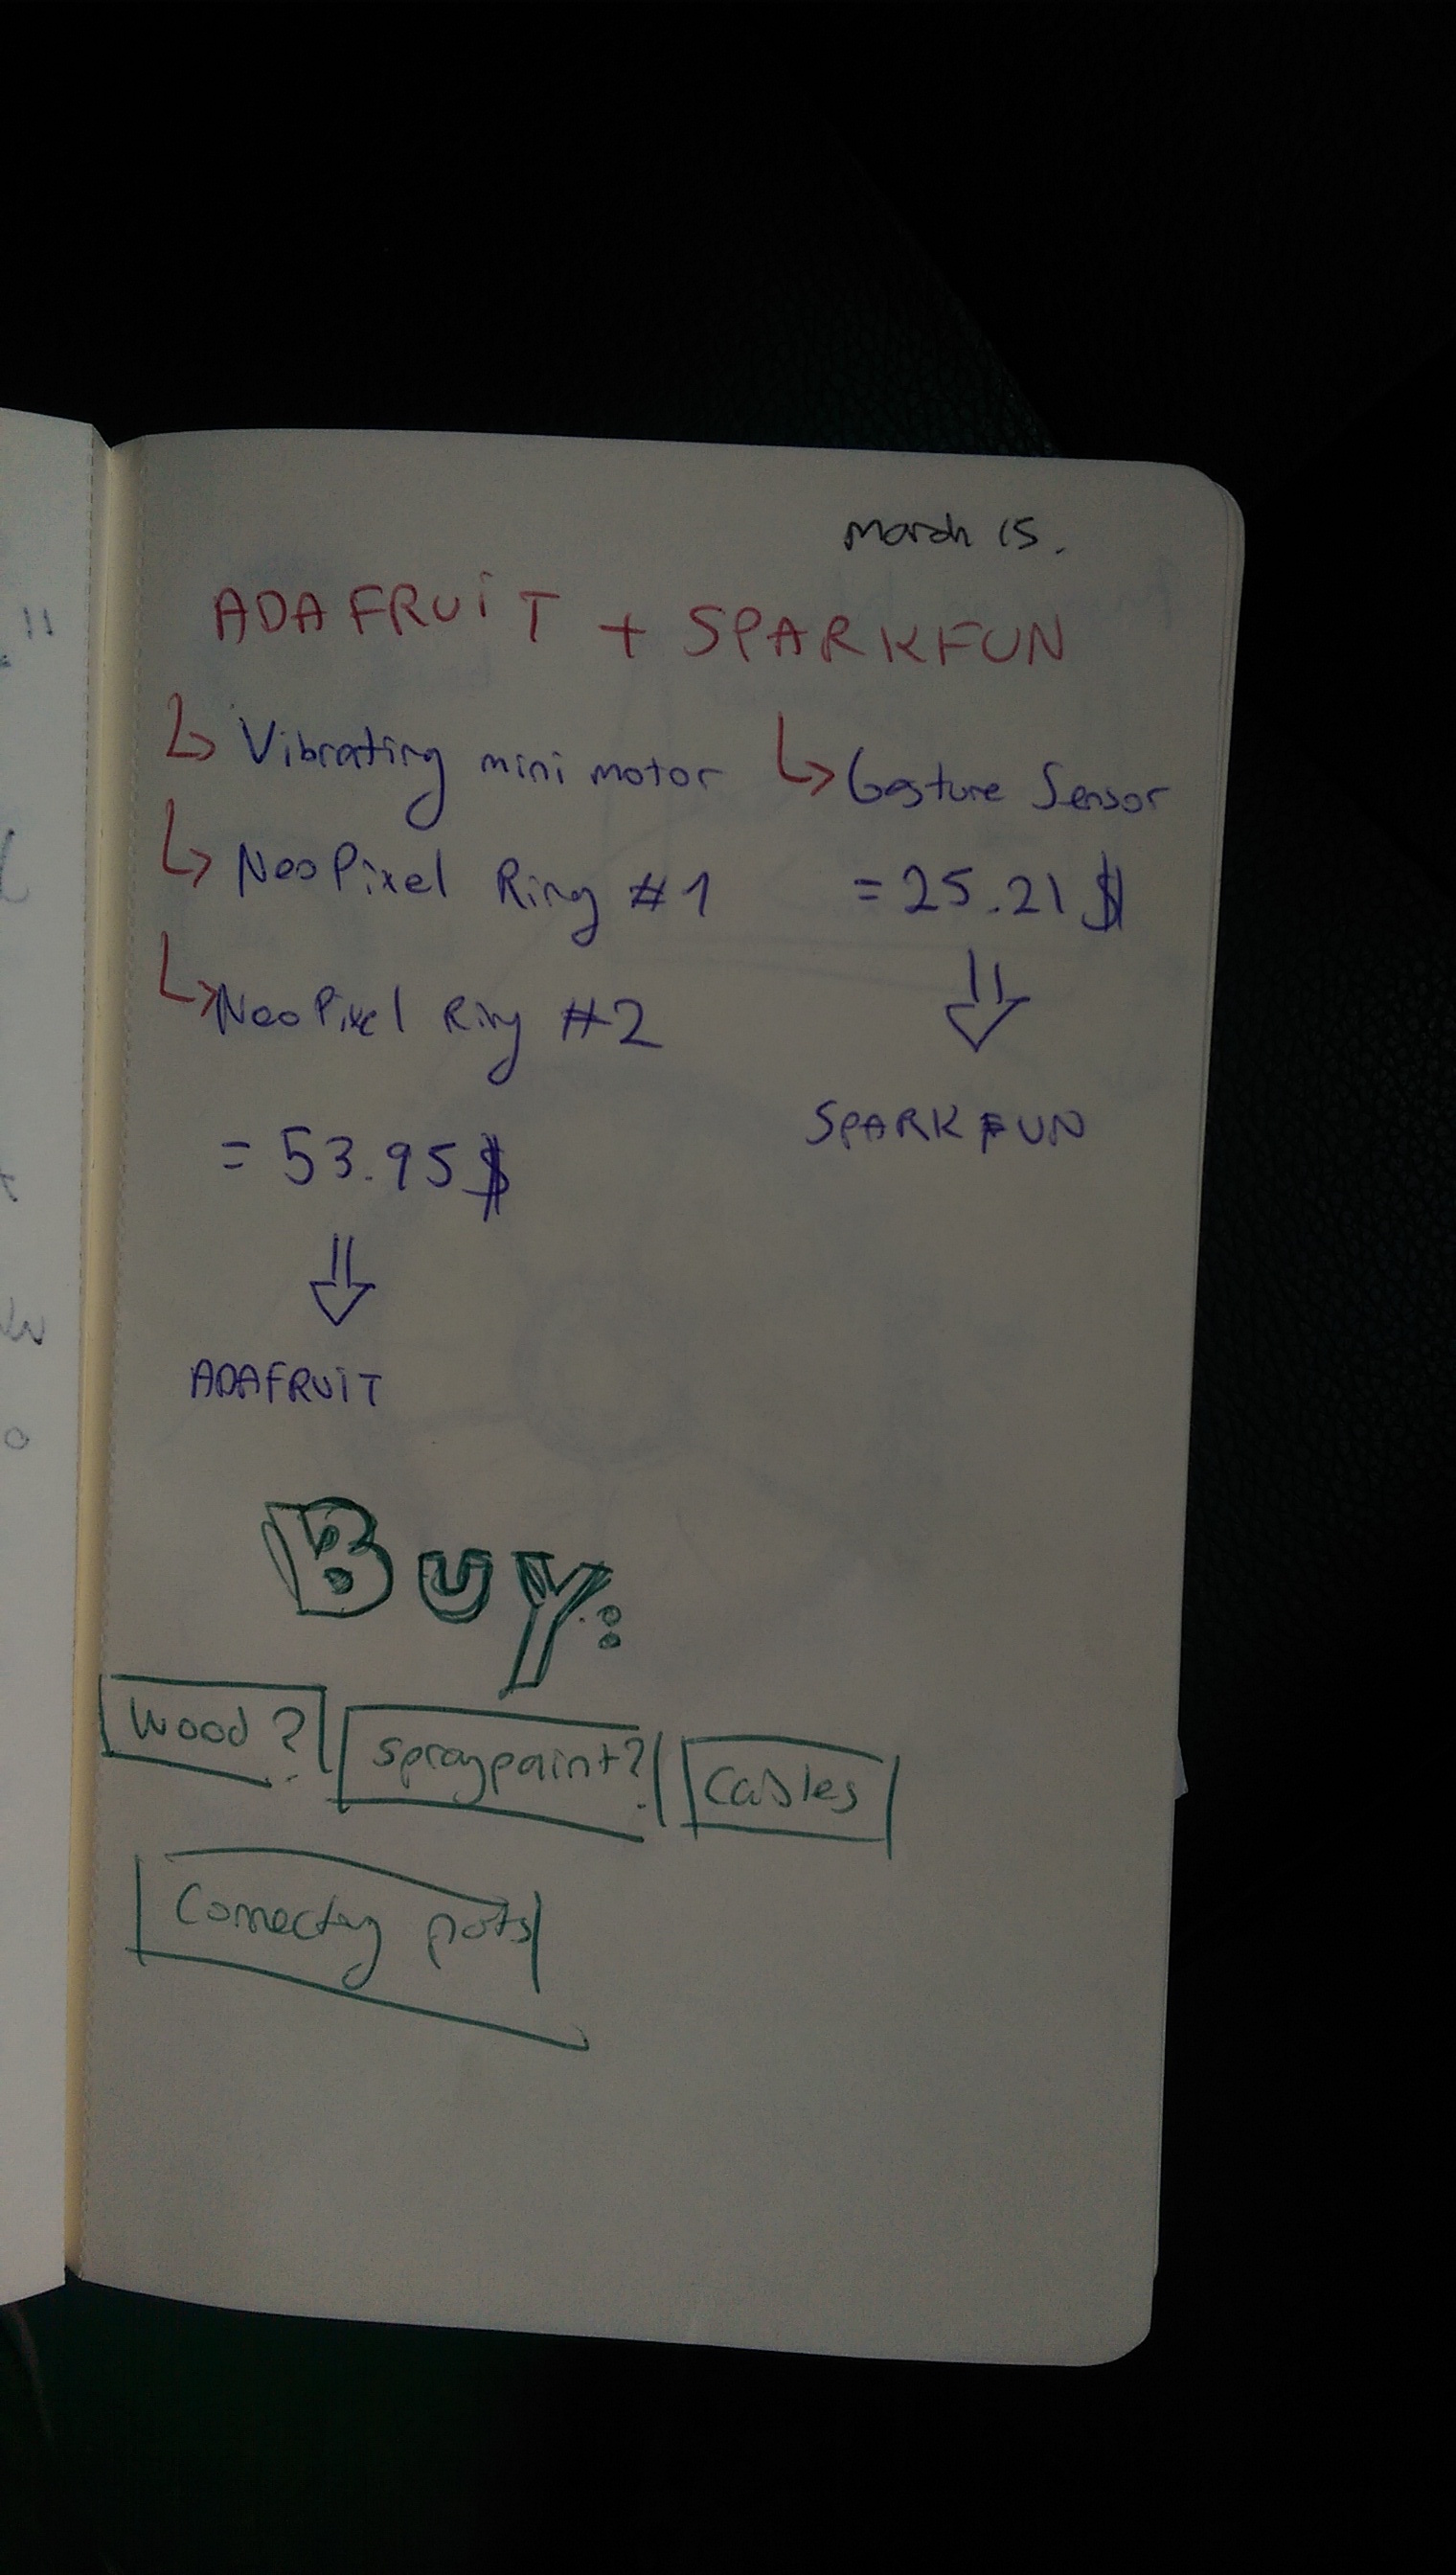 March 15.
ADAFRUiT + SPARKFUN
Vibrating mini motor
NeoPixel Ring #1
NeoPixel Ring #2
= 53.95 $
ADAFRUiT
Gesture Sensor
= 25.21 $
SPARKFUN
Buy:
Wood? spraypaint? Cables
Connecting parts